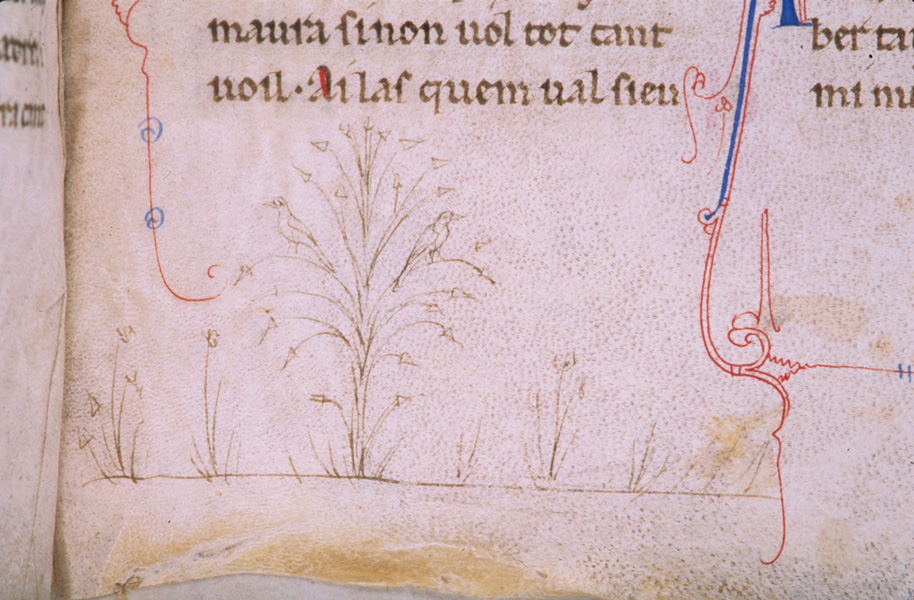 maura sinon uol tot tant
uoil · Ai las quem ual sieu
ber ta
mi